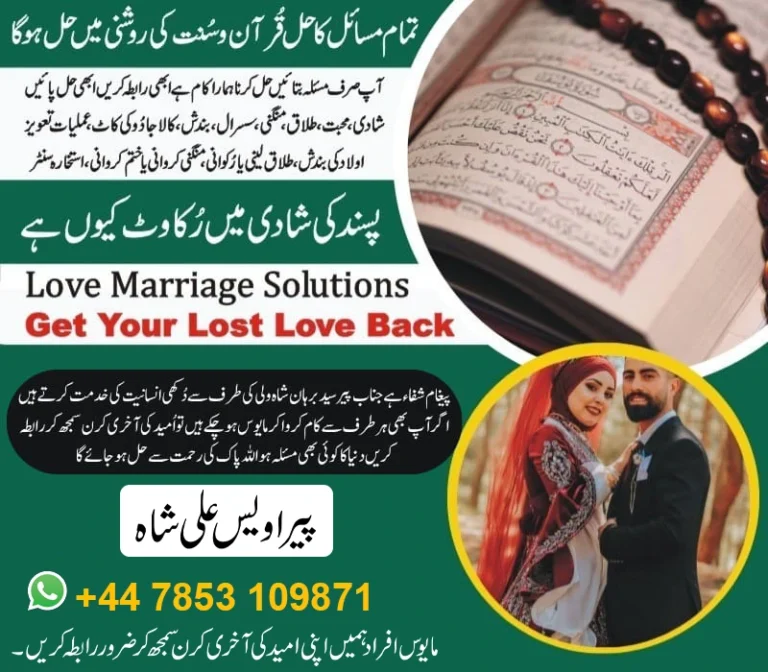 تمام مسائل کا حل قُرآن و سُنت کی روشنی میں حل ہوگا
آپ صرف مسئلہ بتائیں حل کرنا ہمارا کام ہے ابھی رابطہ کریں ابھی حل پائیں
شادی، محبت، طلاق، منگنی، سسرال، بندش، کالا جادُو کی کاٹ، عملیات تعویز
اولاد کی بندش، طلاق لینی یا رُکوانی، منگنی کروانی یا ختم کروانی، استخارہ سنٹر
پسند کی شادی میں رُکاوٹ کیوں ہے
Love Marriage Solutions
Get Your Lost Love Back
پیغام شفاء ہے جناب پیر سید برہان شاہ ولی کی طرف سے دُکھی انسانیت کی خدمت کرتے ہیں
اگر آپ بھی ہر طرف سے کام کروا کر مایوس ہو چکے ہیں تو اُمید کی آخری کرن سمجھ کر رابطہ
کریں دنیا کا کوئی بھی مسئلہ ہو اللہ پاک کی رحمت سے حل ہو جائے گا
پیر اویس علی شاہ
+44 7853 109871
مایوس افراد ہمیں اپنی امید کی آخری کرن سمجھ کر ضرور رابطہ کریں۔